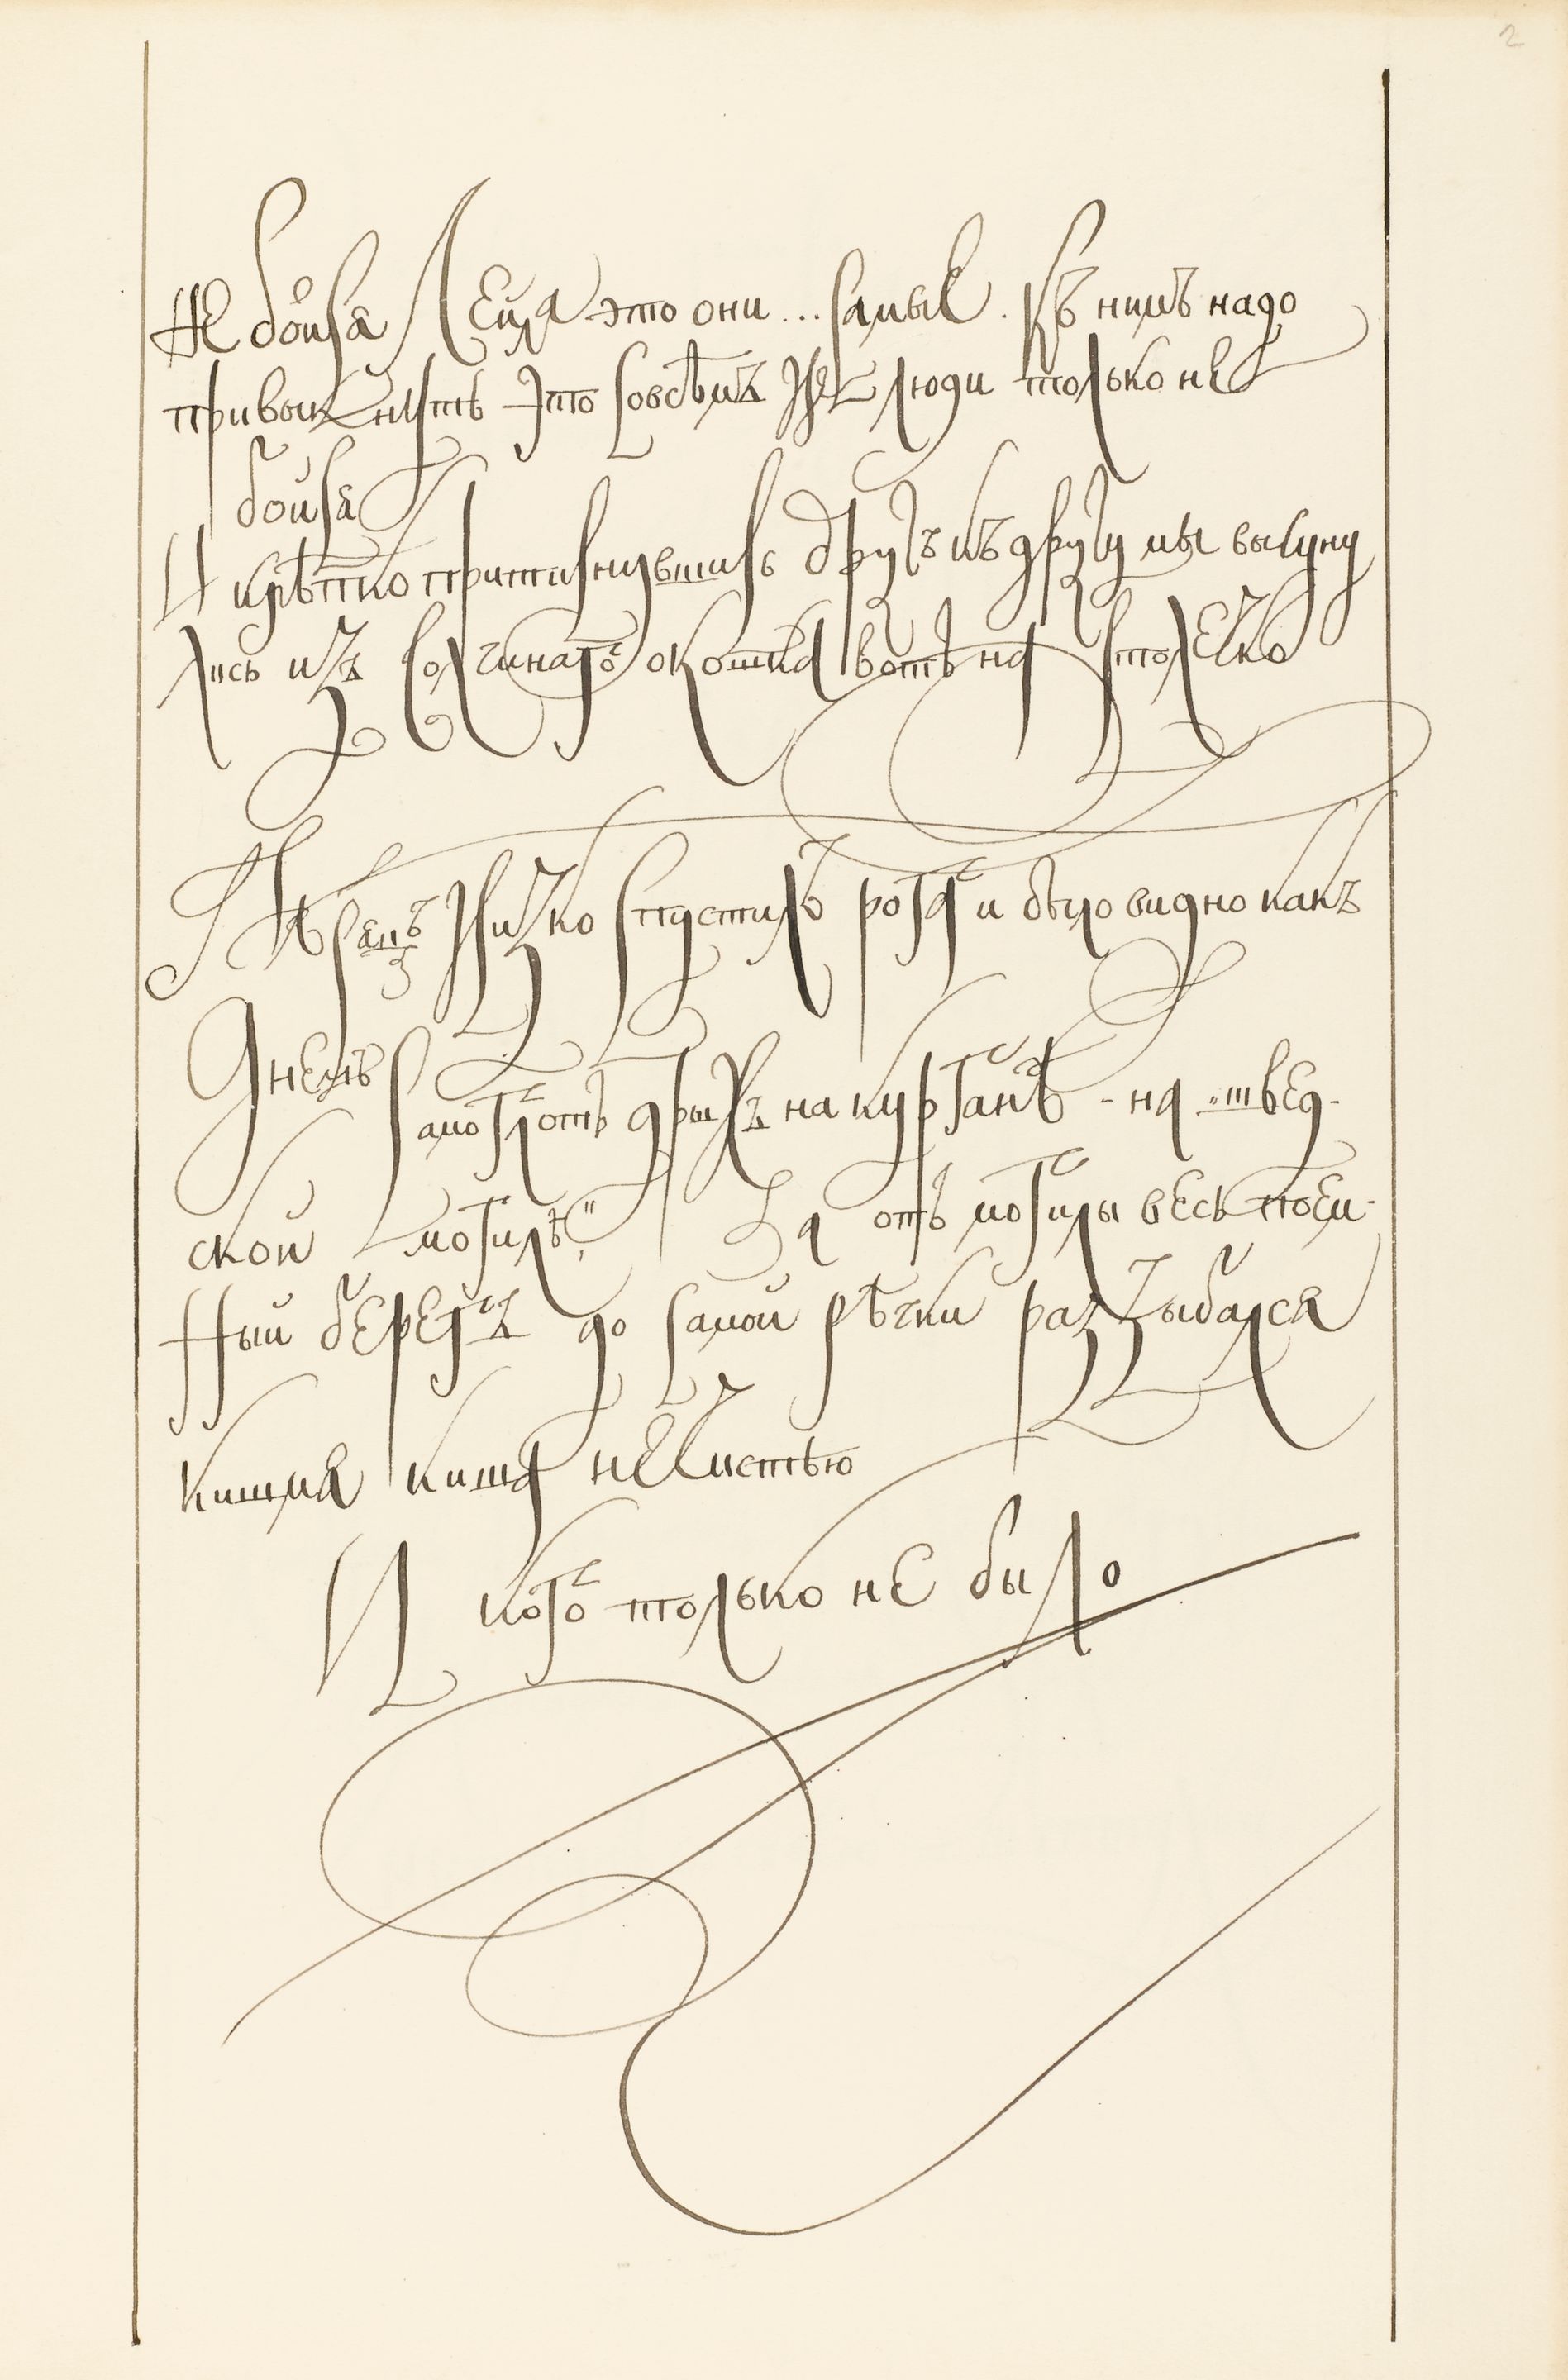 2
Не бойся Лейла это они... самые. Къ нимъ надо
привыкнуть Это совсѣмъ не люди только не
бойся
И крѣпко притиснувшись другъ къ другу мы высуну
лись изъ солчинаго окошка вотъ на столечко
Мѣсяцъ низко спустилъ рога и было видно какъ
Днемъ самогкотъ дрыхъ на курганѣ - на „швед-
ской могилѣ." За отъ могилы весь поем-
ный берегъ до самой рѣчки раззыбался
кишмя киша нечистью
И кого только не было